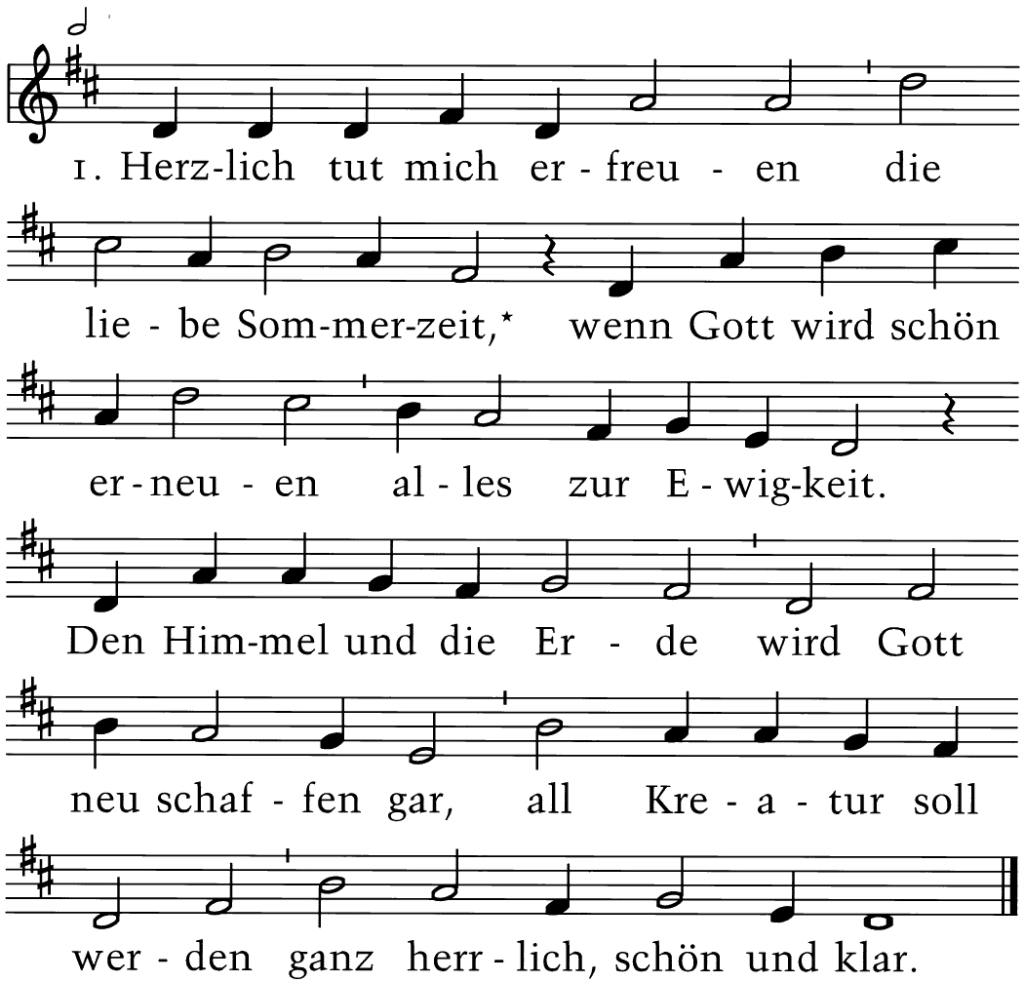 1. Herz-lich tut mich er - freu - en die
lie - be Som-mer-zeit,* wenn Gott wird schön
er - neu - en al - les zur E - wig-keit.
Den Him-mel und die Er - de wird Gott
neu schaf - fen gar, all Kre - a - tur soll
wer - den ganz herr - lich, schön und klar.